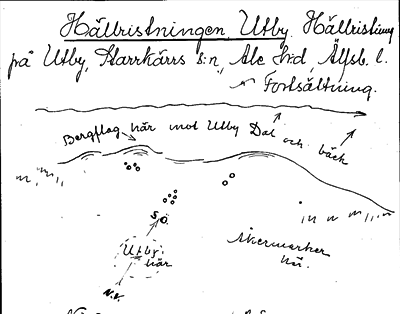 Hällristningen, Utby. Hällristning
på Utby, Starrkärrs s:n, Ale H:d, Älfsb. l.
Fortsättning.
Bergflag här mot Utby Dal och bäck
S.Ö.
Utby
här
Åkermarker
här.
N.V.